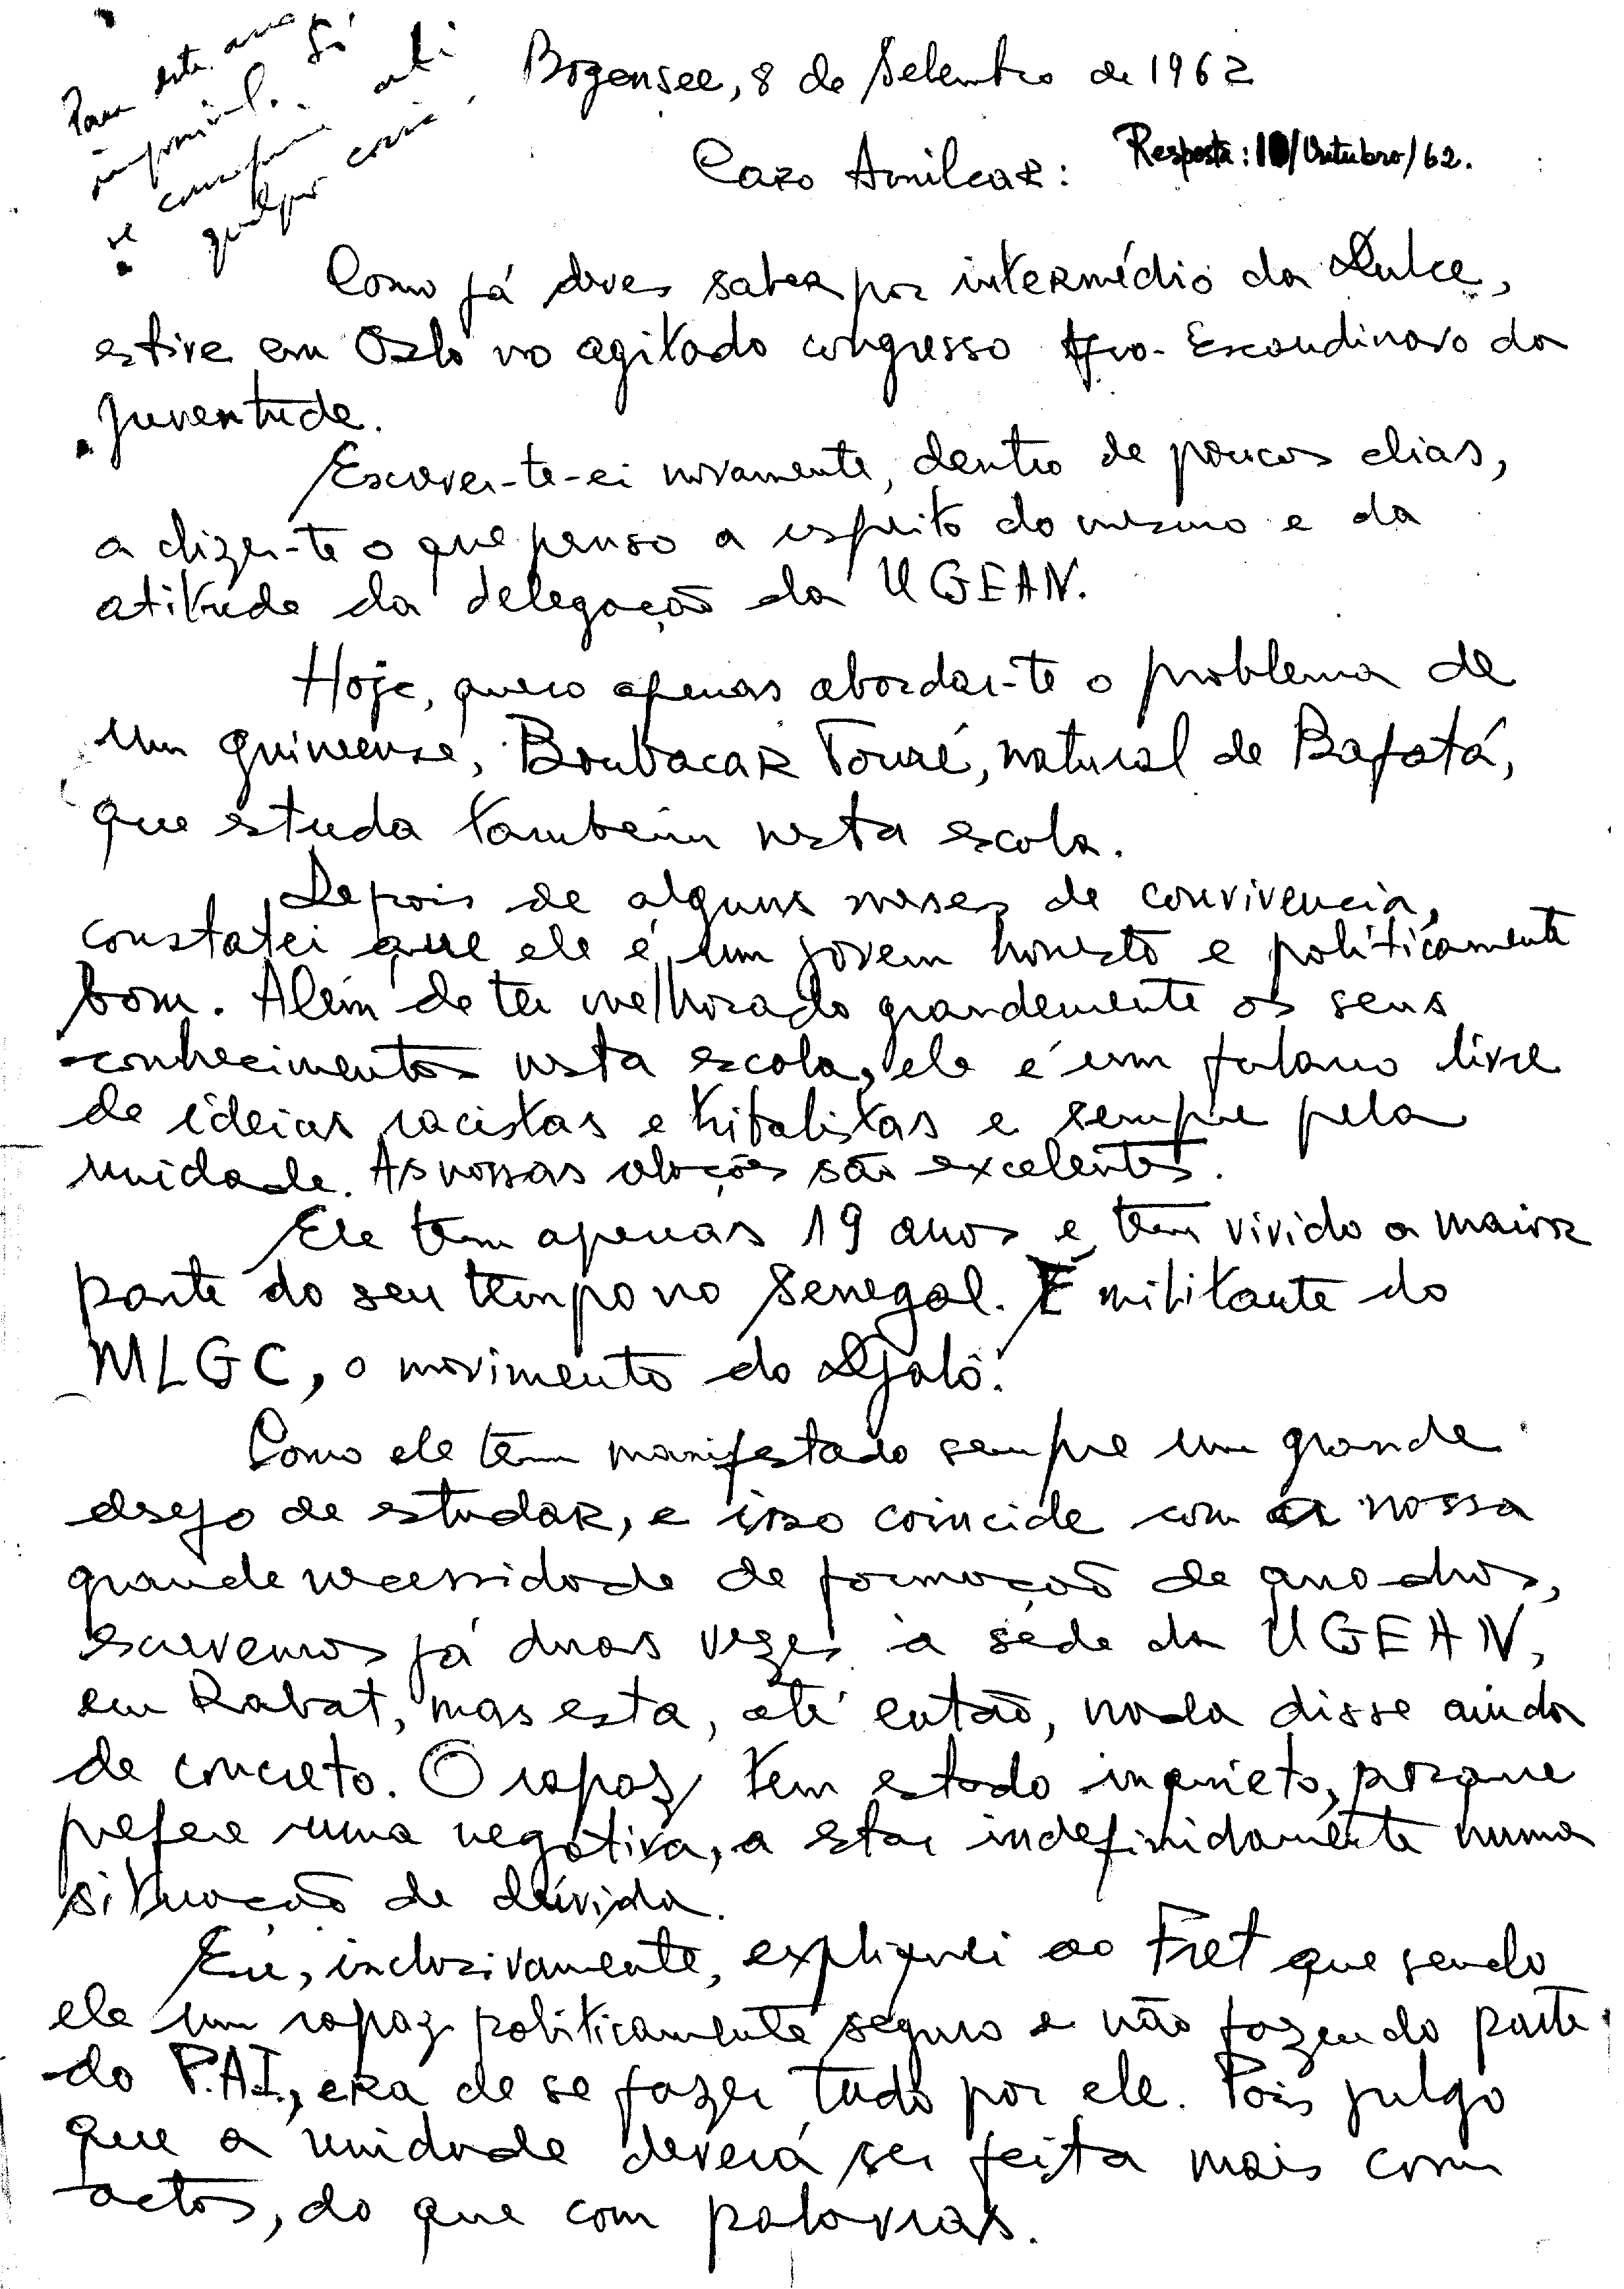 Para este ano
impossível. Só
se conseguir até
qualquer coisa.
Bogensee, 8 de Setembro de 1962
Resposta: 10/Outubro/62.
Caro Amilcar:
Como já deves saber por intermédio da Dulce,
estive em Oslo no agitado congresso Afro-Escandinavo da
Juventude.
Escrever-te-ei novamente, dentro de poucos dias,
a dizer-te o que penso a respeito do mesmo e da
atitude da delegação da UGEAN.
Hoje, quero apenas abordar-te o problema de
um guineense, Boubacar Touré, natural de Bafatá,
que estuda também nesta escola.
Depois de alguns meses de convivencia,
constatei que ele é um jovem honesto e politicamente
bom. Além de ter melhorado grandemente os seus
conhecimentos nesta escola, ele é um fulano livre
de ideias racistas e tribalistas e sempre pela
unidade. As nossas relações são excelentes.
Ele tem apenas 19 anos e tem vivido a maior
parte do seu tempo no Senegal. É militante do
MLGC, o movimento do Djaló.
Como ele tem manifestado sempre um grande
desejo de estudar, e isso coincide com a nossa
grande necessidade de formação de quadros,
escrevemos já duas vezes à séde da UGEAN,
em Rabat, mas esta, até então, nada disse ainda
de concreto. O rapaz tem estado inquieto, porque
prefere uma negativa, a estar indefinidamente numa
situação de dúvida.
Eu, inclusivamente, expliquei ao Fret que sendo
ele um rapaz politicamente seguro e não fazendo parte
do P.A.I., era de se fazer tudo por ele. Pois julgo
que a unidade deverá ser feita mais com
actos, do que com palavras.